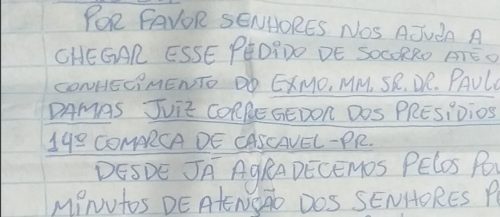 POR FAVOR SENHORES NOS AJUDA A
CHEGAR ESSE PEDIDO DE SOCORRO ATÉ O
CONHECIMENTO DO EXMO. MM. SR. DR. PAULO
DAMAS JUIZ CORREGEDOR DOS PRESIDIOS
14º COMARCA DE CASCAVEL-PR.
DESDE JÁ AGRADECEMOS PELOS
MINUTOS DE ATENÇÃO DOS SENHORES